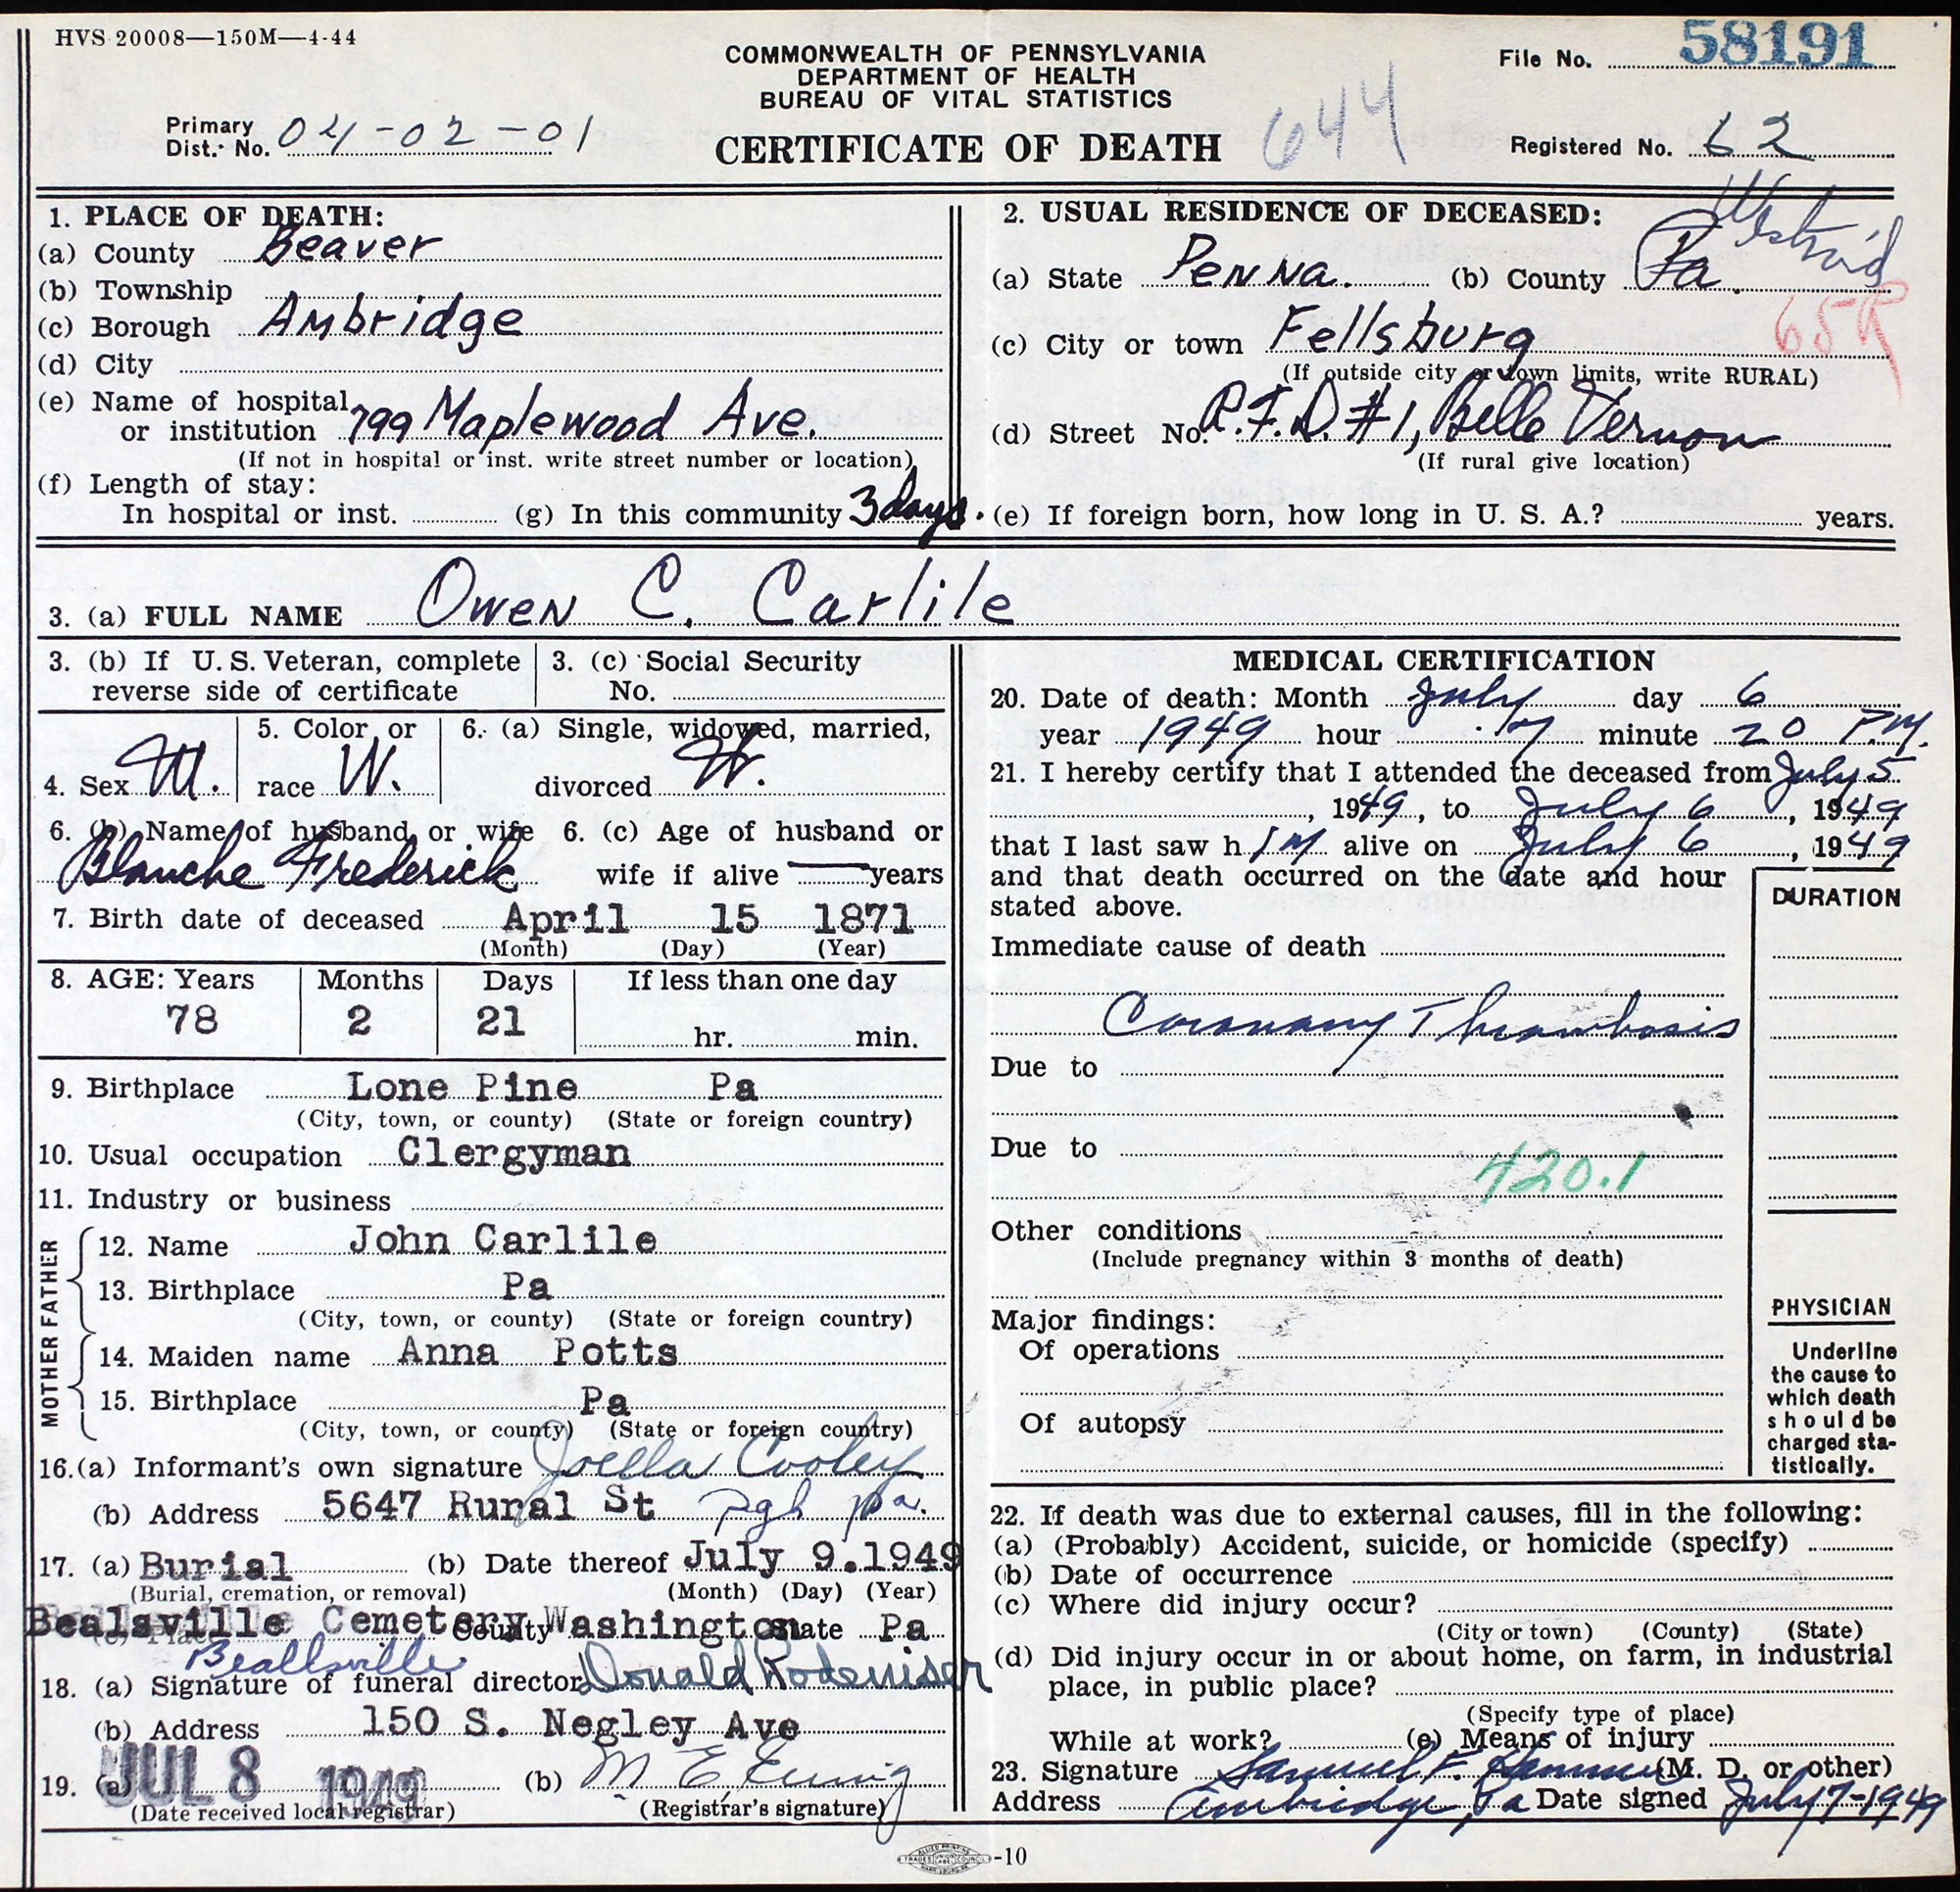 HVS 20008—150M—4-44
COMMONWEALTH OF PENNSYLVANIA
DEPARTMENT OF HEALTH
BUREAU OF VITAL STATISTICS
CERTIFICATE OF DEATH
644
File No. 58191
Primary Dist. No. 04-02-01
Registered No. 62
1. PLACE OF DEATH:
(a) County Beaver
(b) Township
(c) Borough Ambridge
(d) City
(e) Name of hospital
or institution 799 Maplewood Ave.
(If not in hospital or inst. write street number or location)
(f) Length of stay:
In hospital or inst. (g) In this community 3 days.
2. USUAL RESIDENCE OF DECEASED:
(a) State Penna. (b) County Pa.
65R
(c) City or town Fellsburg
(If outside city or town limits, write RURAL)
(d) Street No. R.F.D. #1, Belle Vernon
(If rural give location)
(e) If foreign born, how long in U. S. A.? years.
3. (a) FULL NAME Owen C. Carlile
3. (b) If U. S. Veteran, complete
reverse side of certificate
3. (c) Social Security
No.
4. Sex M.
5. Color or
race W.
6. (a) Single, widowed, married,
divorced W.
6. (b) Name of husband or wife
Blanche Frederick
6. (c) Age of husband or
wife if alive — years
7. Birth date of deceased April 15 1871
(Month) (Day) (Year)
8. AGE: Years Months Days If less than one day
78 2 21 hr. min.
9. Birthplace Lone Pine Pa
(City, town, or county) (State or foreign country)
10. Usual occupation Clergyman
11. Industry or business
FATHER
12. Name John Carlile
13. Birthplace Pa
(City, town, or county) (State or foreign country)
MOTHER
14. Maiden name Anna Potts
15. Birthplace Pa
(City, town, or county) (State or foreign country)
16.(a) Informant's own signature Joella Cooley
(b) Address 5647 Rural St Pgh pa.
17. (a) Burial (b) Date thereof July 9.1949
(Burial, cremation, or removal) (Month) (Day) (Year)
(c) Place Bealsville Cemetery County Washington State Pa
Beallsville
18. (a) Signature of funeral director Donald Rodeniser
(b) Address 150 S. Negley Ave
19. (a) JUL 8 1949 (b) M E Ewing
(Date received local registrar) (Registrar's signature)
MEDICAL CERTIFICATION
20. Date of death: Month July day 6
year 1949 hour 7 minute 20 P.M.
21. I hereby certify that I attended the deceased from July 5
, 1949, to July 6, 1949
that I last saw h im alive on July 6, 1949
and that death occurred on the date and hour
stated above.
DURATION
Immediate cause of death
Coronary Thrombosis
Due to
Due to
420.1
Other conditions
(Include pregnancy within 3 months of death)
Major findings:
Of operations
Of autopsy
PHYSICIAN
Underline
the cause to
which death
should be
charged sta-
tistically.
22. If death was due to external causes, fill in the following:
(a) (Probably) Accident, suicide, or homicide (specify)
(b) Date of occurrence
(c) Where did injury occur?
(City or town) (County) (State)
(d) Did injury occur in or about home, on farm, in industrial
place, in public place?
(Specify type of place)
While at work? (e) Means of injury
23. Signature Samuel F. (M. D. or other)
Address Ambridge, Pa Date signed July 7-1949
-10